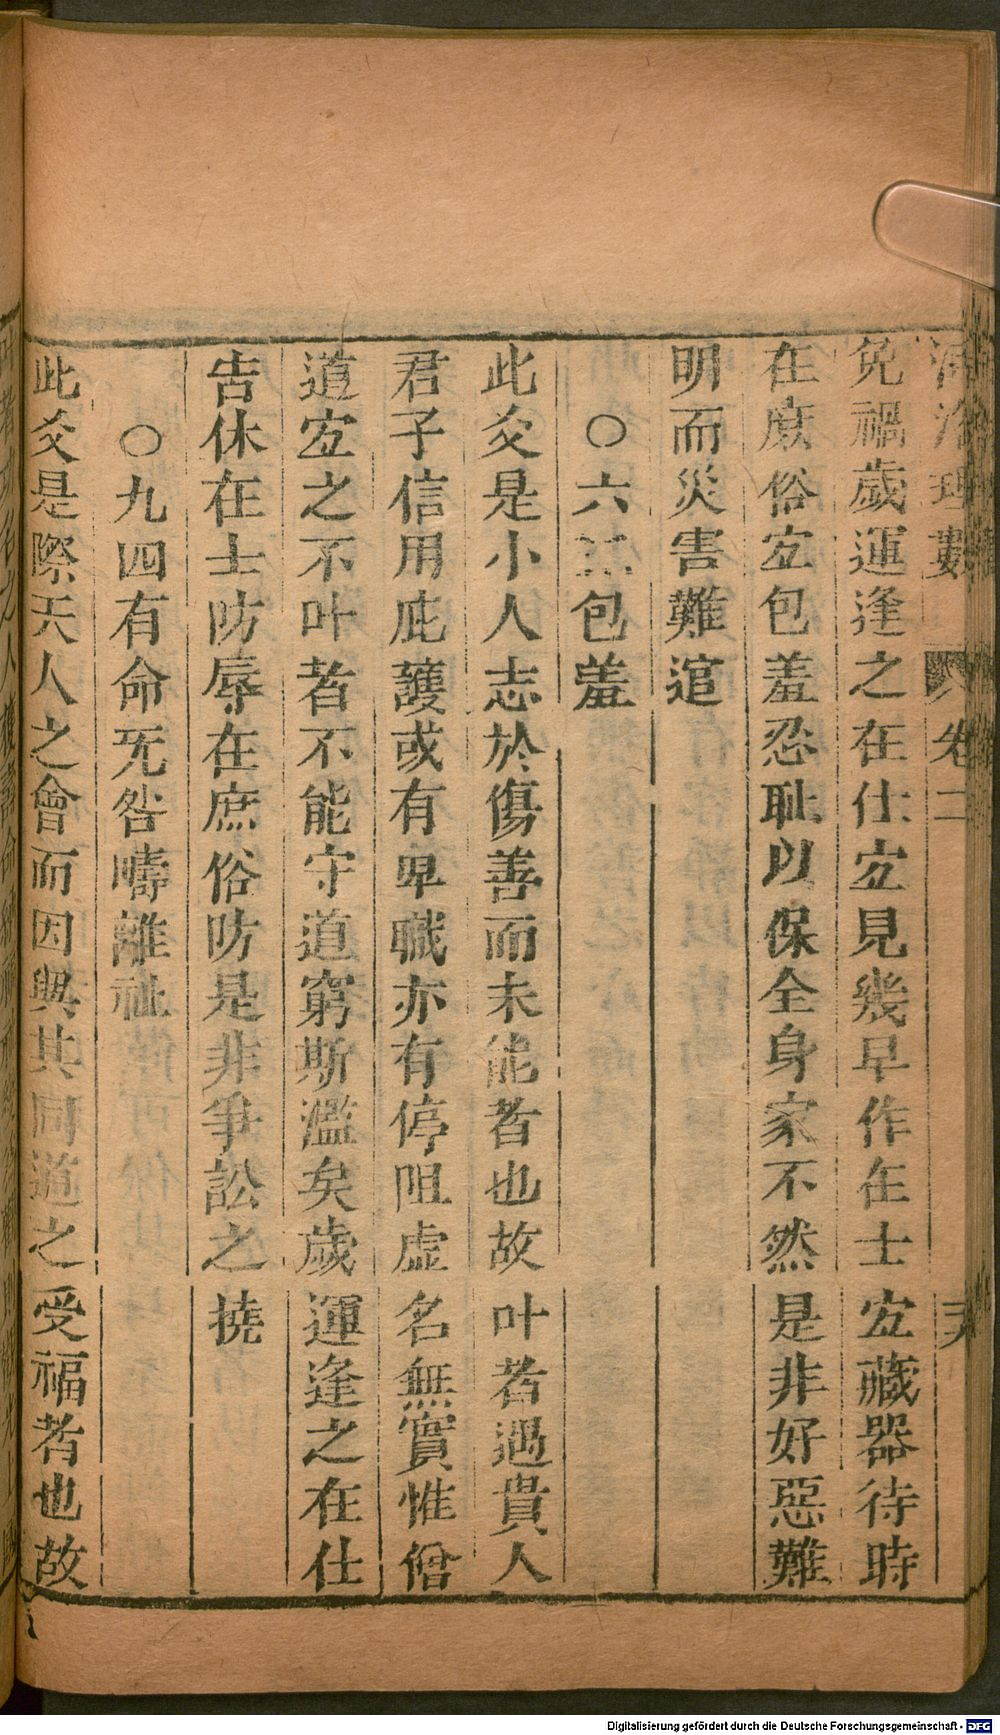 河洛理數 卷二
免禍歲運逢之在仕宐見幾早作在士宐藏器待時
在庶俗宐包羞忍恥以保全身家不然是非好惡難
明而災害難逭
○六三包羞
此爻是小人志於傷善而未能者也故叶者遇貴人
君子信用庇護或有卑職亦有停阻虛名無實惟僧
道宐之不叶者不能守道窮斯濫矣歲運逢之在仕
告休在士防辱在庶俗防是非爭訟之撓
○九四有命旡咎疇離祉
此爻是際天人之會而因與其同道之受福者也故
Digitalisierung gefördert durch die Deutsche Forschungsgemeinschaft - DFG